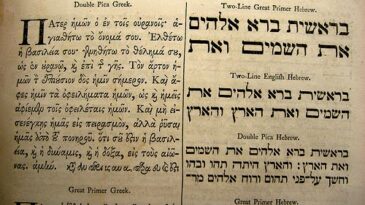 Double Pica Greek.
Πάτερ ἡμῶν ὁ ἐν τοῖς οὐρανοῖς· ἁ-
γιασθήτω τὸ ὄνομά σου. Ἐλθέτω
ἡ βασιλεία σου· γενηθήτω τὸ θέλημά σου,
ὡς ἐν οὐρανῷ, ϗ ἐπὶ τ γῆς. Τὸν ἄρτον
ἡμῶν τ ἐπιούσιον δὸς ἡμῖν σήμερον. Καὶ ἄφες
ἡμῖν τὰ ὀφειλήματα ἡμῶν, ὡς ϗ ἡμεῖς
ἀφίεμεν τοῖς ὀφειλέταις ἡμῶν. Καὶ μὴ εἰσ-
ενέγκῃς ἡμᾶς εἰς πειρασμὸν, ἀλλὰ ῥῦσαι
ἡμᾶς ἀπὸ τ πονηροῦ. ὅτι σοῦ ἐστιν ἡ βασιλεί-
α, ϗ ἡ δύναμις, ϗ ἡ δόξα, εἰς τοὺς αἰῶ-
νας. ἀμήν.
Great Primer Greek.
Two-Line Great Primer Hebrew.
בראשית ברא אלהים
את השמים ואת
Two-Line English Hebrew.
בראשית ברא אלהים את
השמים ואת הארץ והארץ
Double Pica Hebrew.
בראשית ברא אלהים את השמים
ואת הארץ: והארץ היתה תהו ובהו
וחשך על־פני תהום ורוח אלהים מר־
Great Primer Hebrew.